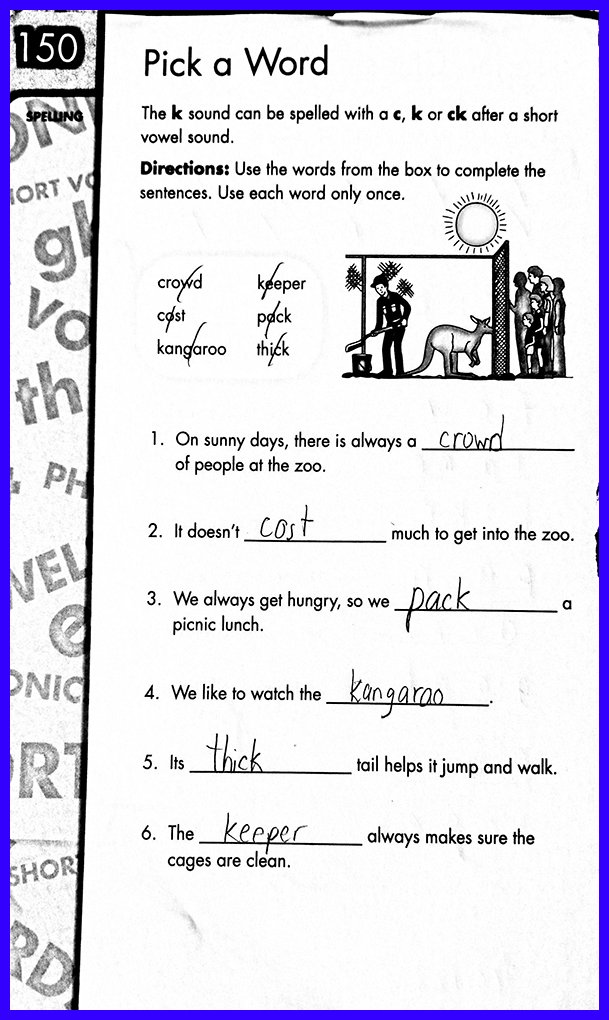 150
Pick a Word
SPELLING
The k sound can be spelled with a c, k or ck after a short
vowel sound.
Directions: Use the words from the box to complete the
sentences. Use each word only once.
crowd keeper
cost pack
kangaroo thick
1. On sunny days, there is always a crowd
of people at the zoo.
2. It doesn't cost much to get into the zoo.
3. We always get hungry, so we pack a
picnic lunch.
4. We like to watch the kangaroo.
5. Its thick tail helps it jump and walk.
6. The keeper always makes sure the
cages are clean.